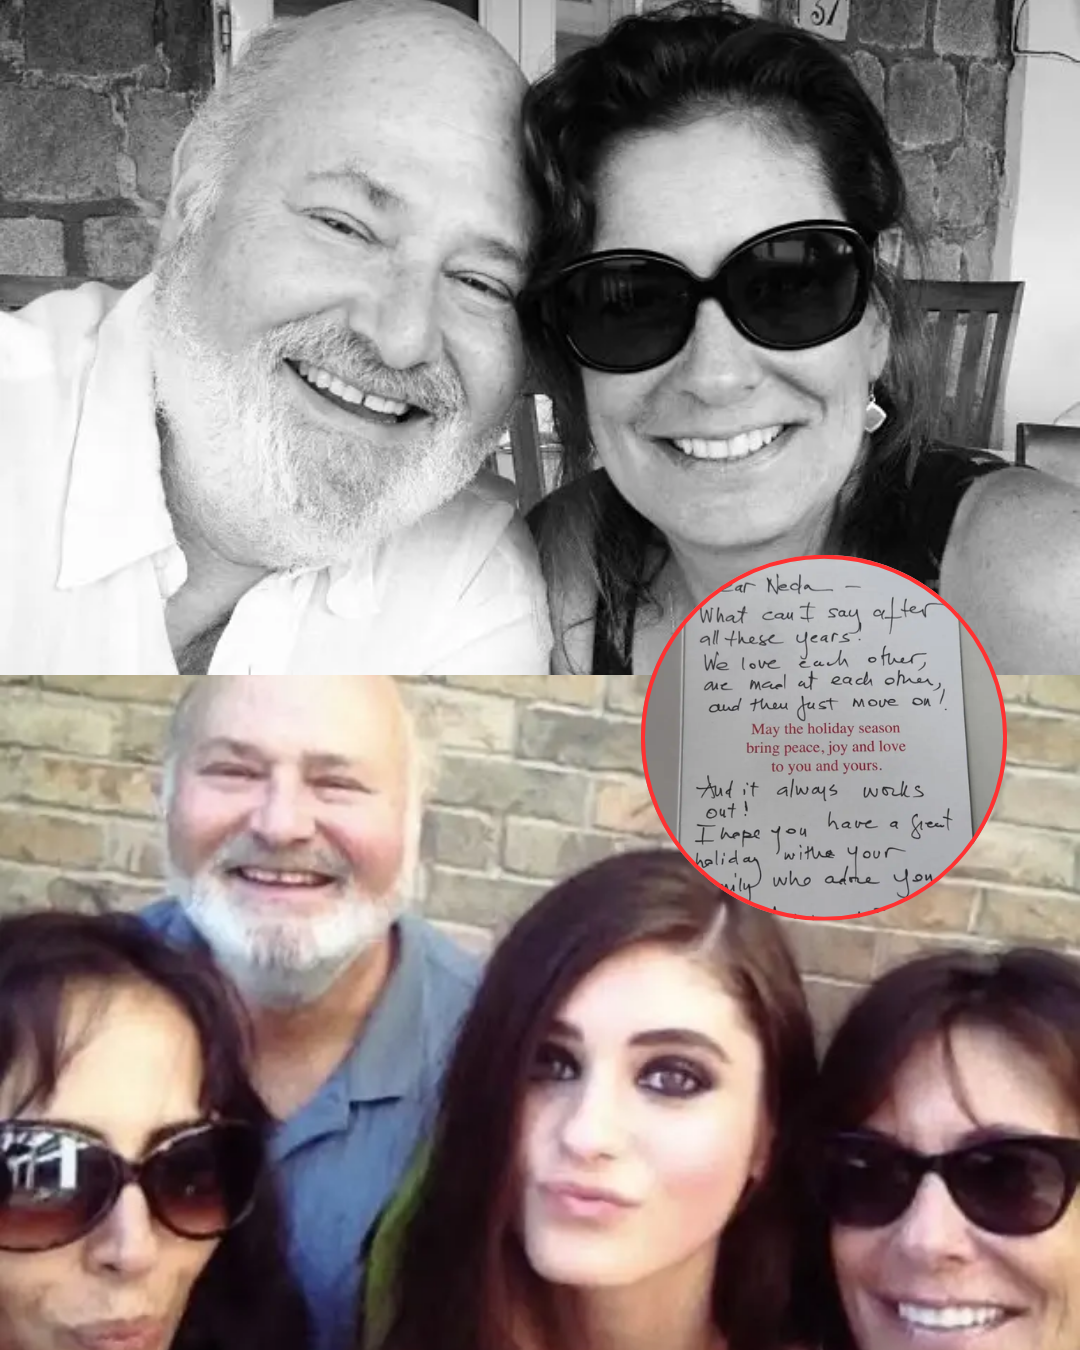 51
ear Neda —
What can I say after
all these years.
We love each other,
are mad at each other,
and then just move on!
May the holiday season
bring peace, joy and love
to you and yours.
And it always works
out!
I hope you have a great
holiday withe your
mily who adore you